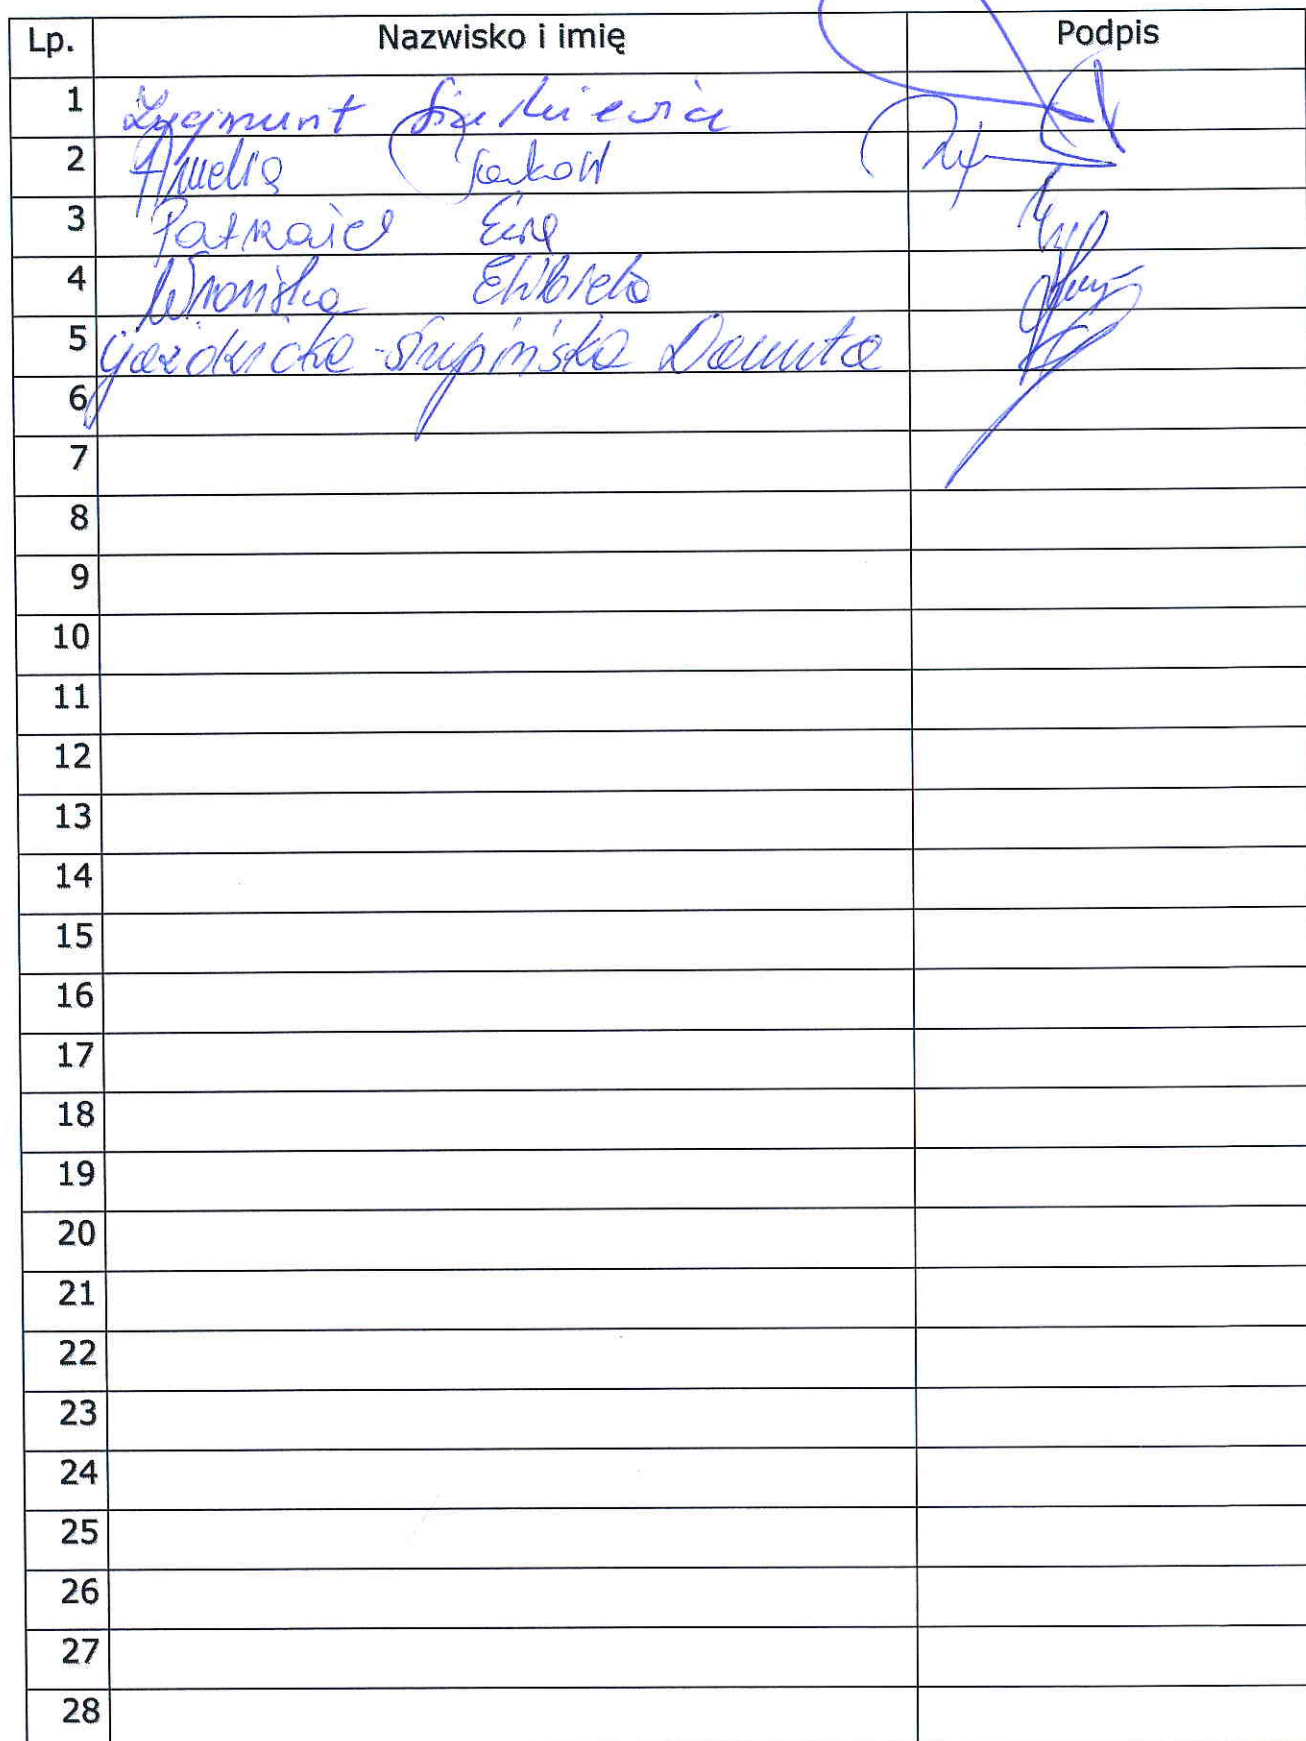 Lp. Nazwisko i imię Podpis
1 Zygmunt Sienkiewicz
2 Amelia
3 Ewa
4 Wrońska Elżbieta
5 Gaździcka-Słupińska Danuta
6
7
8
9
10
11
12
13
14
15
16
17
18
19
20
21
22
23
24
25
26
27
28